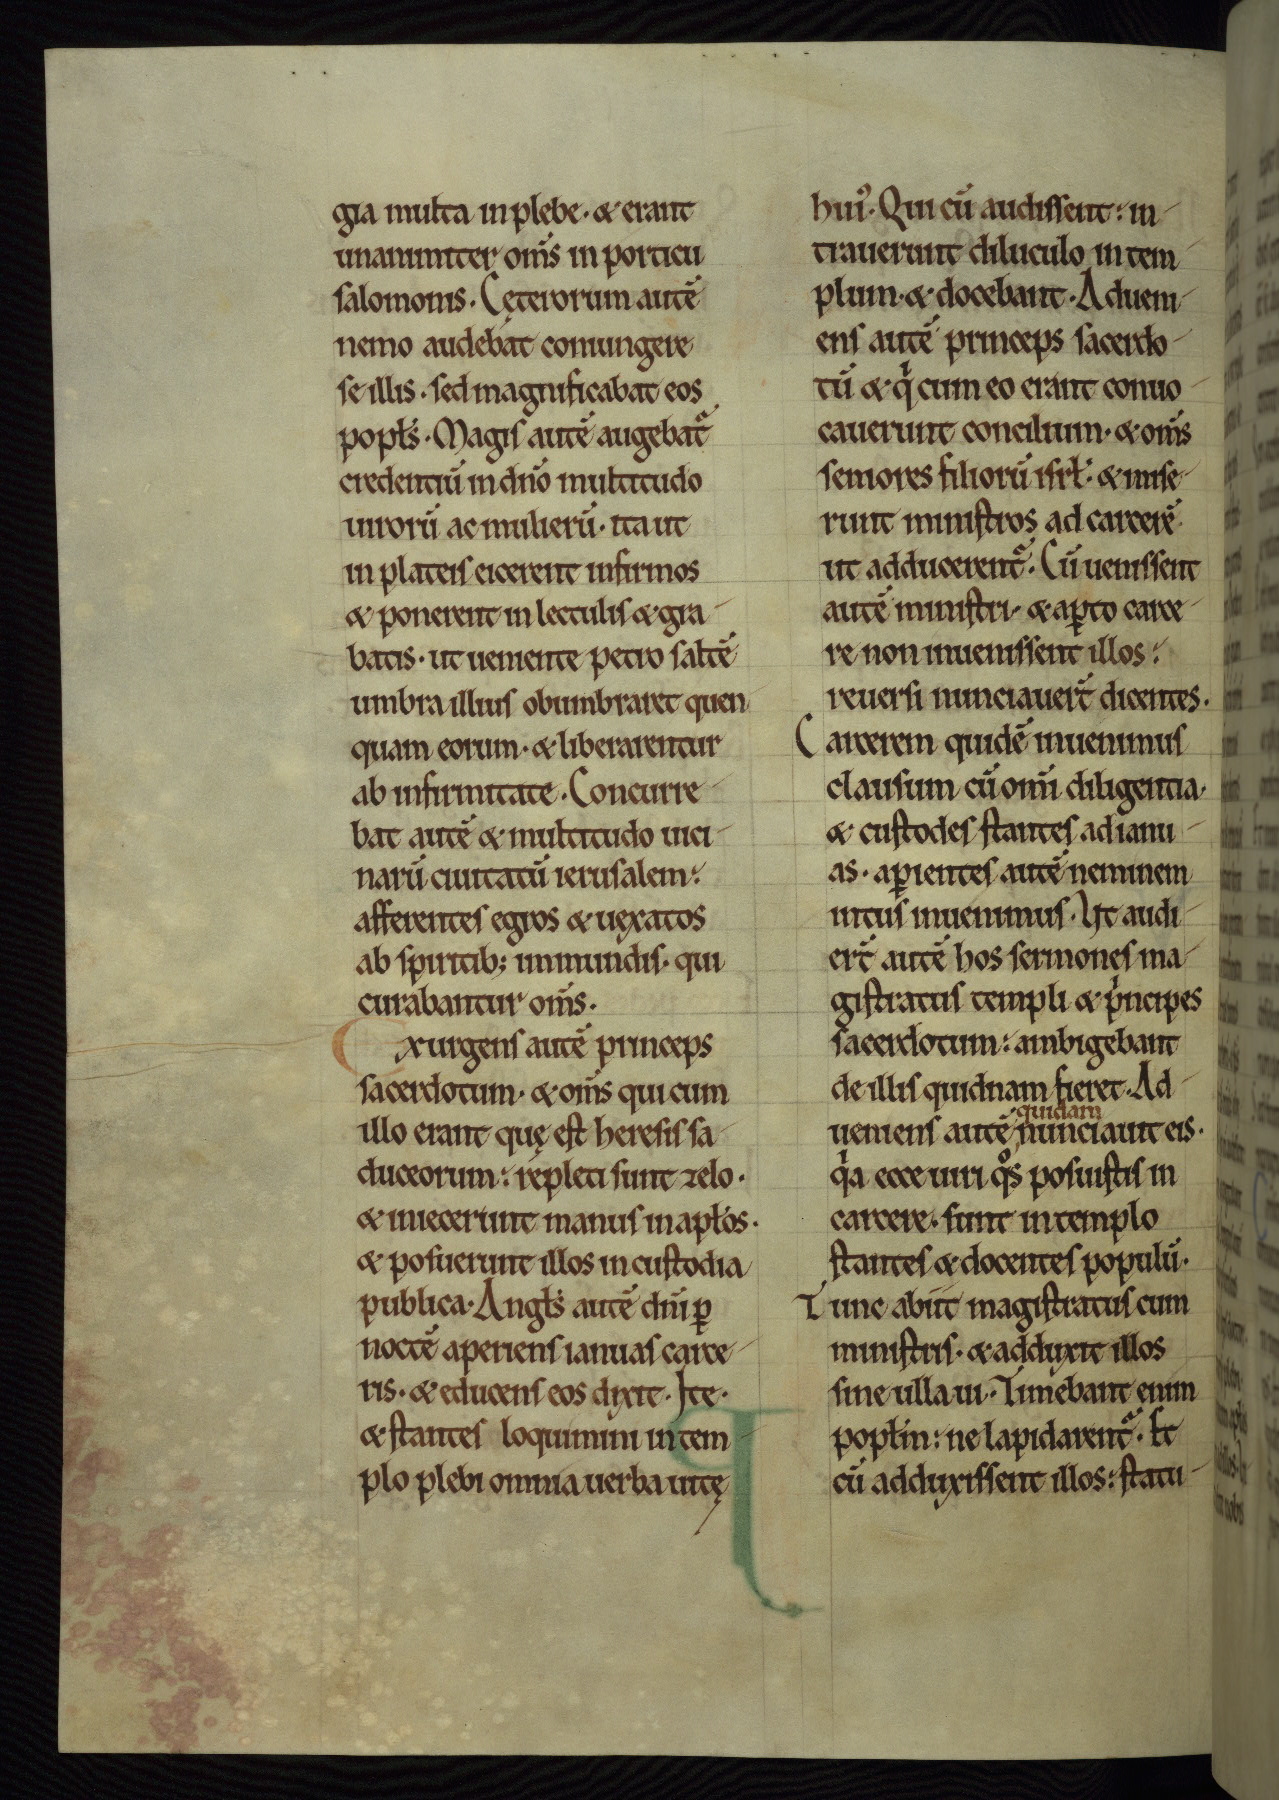 gia multa in plebe· & erant
unanimiter om̅s in porticu
salomonis. Cęterorum aute̅
nemo audebat coniungere
se illis· sed magnificabat eos
popl̅s. Magis aute̅ augebat᷑
credentiu̅ in dn̅o multitudo
uiroru̅ ac mulieru̅· ita ut
in plateis eicerent infirmos
& ponerent in lectulis & gra
batis· ut ueniente petro salte̅
umbra illius obumbraret quen
quam eorum· & liberarentur
ab infirmitate. Concurre
bat aute̅ & multitudo uici
naru̅ ciuitatu̅ ierusalem:
afferentes egros & uexatos
ab spiritib; immundis· qui
curabantur om̅s.
Exurgens aute̅ princeps
sacerdotum· & om̅s qui cum
illo erant quę est heresis sa
duceorum: repleti sunt zelo·
& iniecerunt manus in apl̅os·
& posuerunt illos in custodia
publica. Angl̅s aute̅ dn̅i ꝑ
nocte̅ aperiens ianuas carce
ris· & educens eos dixit. Ite·
& stantes loquimini in tem
plo plebi omnia uerba uitę
hui᷒. Qui cu̅ audissent: in
trauerunt diluculo in tem
plum· & docebant. Adueni
ens aute̅ princeps sacerdo
tu̅ & qͥ cum eo erant conuo
cauerunt concilium· & om̅s
seniores filioru̅ isrl̅· & mise
runt ministros ad carcere̅
ut adducerent᷑. Cu̅ uenissent
aute̅ ministri· & aꝑto carce
re non inuenissent illos:
reuersi nunciauer̅t dicentes.
Carcerem quide̅ inuenimus
clausum cu̅ om̅i diligentia·
& custodes stantes ad ianu
as· aꝑientes aute̅ neminem
intus inuenimus. Ut audi
er̅t aute̅ hos sermones ma
gistratus templi & pͥncipes
sacerdotum: ambigebant
de illis quidnam fieret. Ad
quidam
ueniens aute̅ nunciauit eis.
qͥa ecce uiri qͦs posuistis in
carcere· sunt in templo
stantes & docentes populu̅.
Tunc abiit magistratus cum
ministris· & adduxit illos
sine ulla ui. Timebant enim
popl̅m: ne lapidarent᷑. Et
cu̅ adduxissent illos: statu